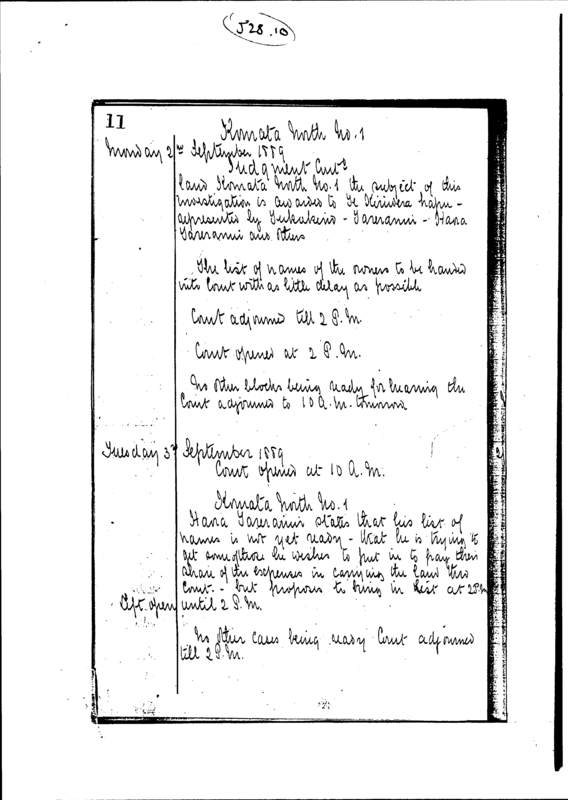 528.10
11
Komata North No. 1
Monday 2nd September 1889
Judgment Contd
land Komata North No. 1 the subject of this
investigation is awarded to Te hapu -
represented by - - Hana
and others
The list of names of the owners to be handed
into Court with as little delay as possible
Court adjourned till 2 P.M.
Court opened at 2 P.M.
No other blocks being ready for hearing the
Court adjourned to 10 A.M. tomorrow
Tuesday 3rd September 1889
Court opened at 10 A.M.
Komata North No. 1
Hana states that his list of
names is not yet ready - that he is trying to
get some of those he wishes to put in to pay their
share of the expenses in carrying the land thro
Court. - but proposes to bring in list at 2 P.M
Left open until 2 P.M.
No other cases being ready Court adjourned
till 2 P.M.